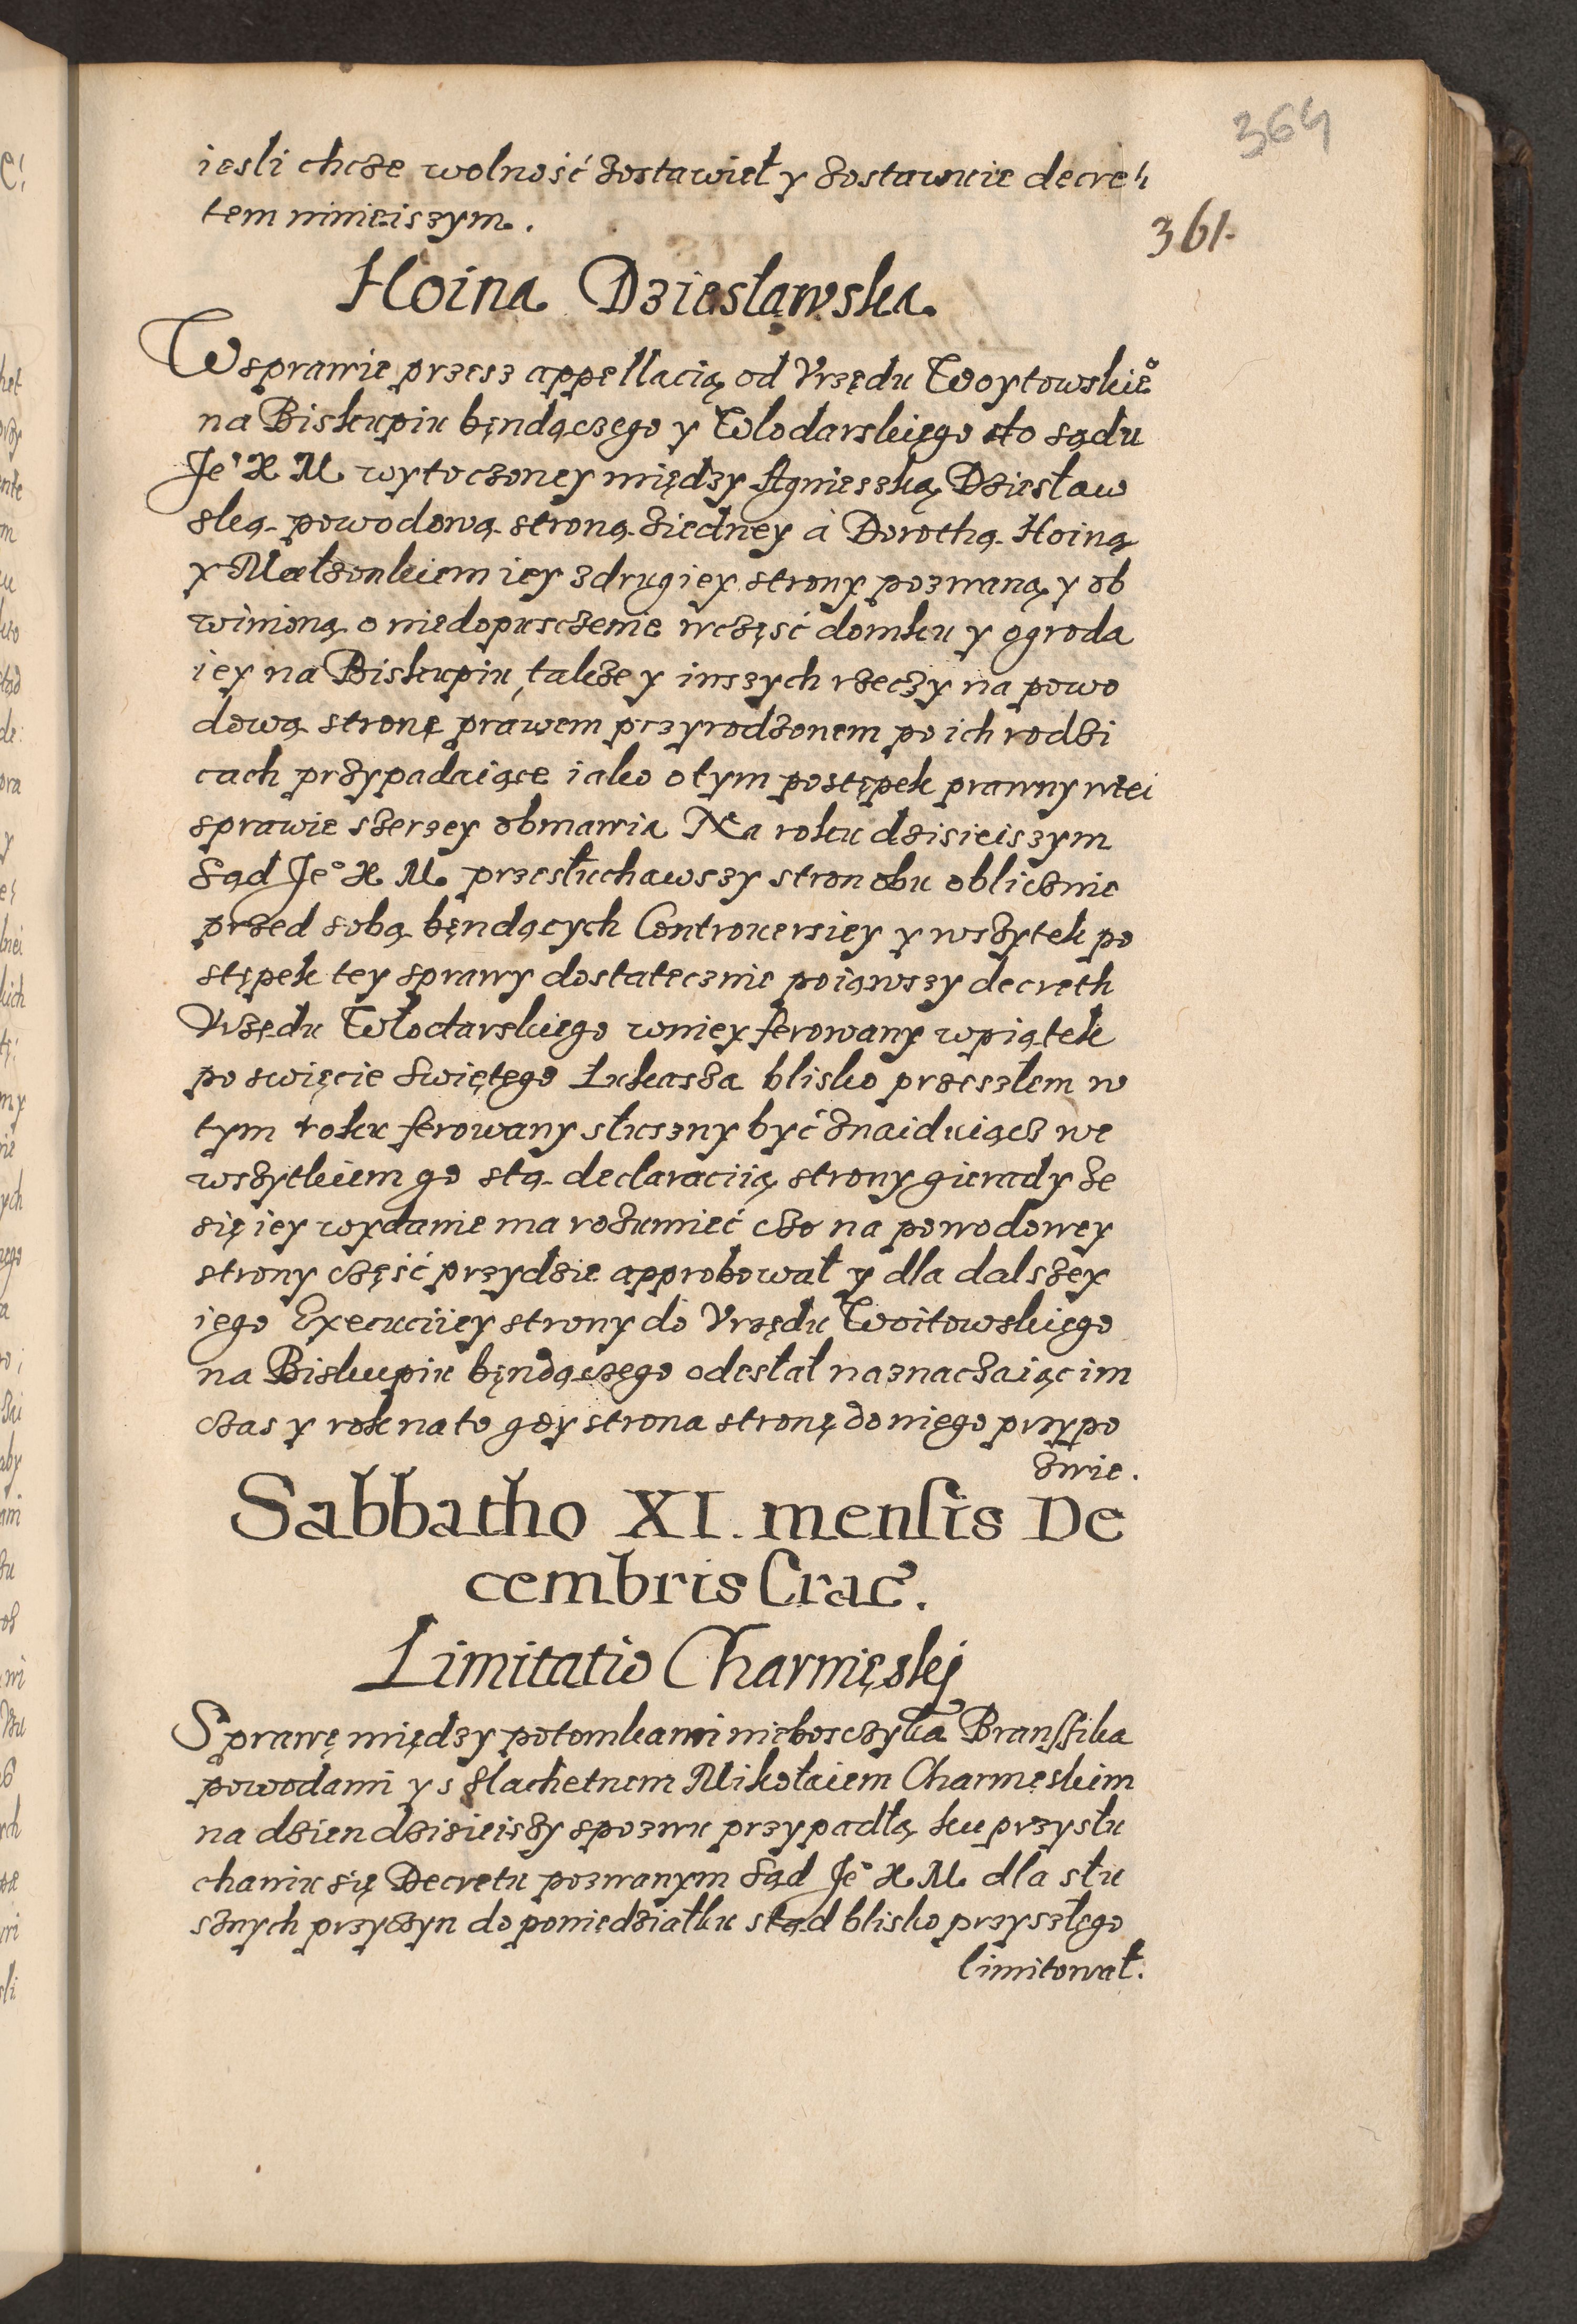 364
iesli chcze wolność zostawieł y zostawuie decre
tem ninieiszym.
361.
Hoina Dziesławska.
W sprawie przesz appellacią od Vrzędu Woytowskie°
na Biskupiu bęndączego y Włodarskiego do sądu
Je° K M wytoczoney między Agnieszką Dziesław
ską powodową stroną ziedney á Dorothą Hoiną
y Małzonkiem iey z drugiey strony pozwaną y ob
winioną o niedopuszczenie wczęść domku y ogroda
iey na Biskupiu, takze y inszych rzeczy na powo
dową stronę prawem przyrodzonem po ich rodzi
cach przypadaiące iako o tym postępek prawny wtei
sprawie szerzey obmawia Na roku dzisieiszym
Sąd Je° K M. przesłuchawszy stron obu oblicznie
przed sobą bęndących Controuersiey y wszytek po
stępek tey sprawy dostatecznie poiąwszy decreth
Vrzędu Włodarskiego wniey ferowany wpiątek
po święcie Swiętego Łukasza blisko przeszłem w
tym roku ferowany słuszny być znaiduiącz we
wszytkiem go stą declaraciią strony gierady że
się iey wydanie ma rozumieć czo na powodowey
strony część przydzie approbował y dla dalszey
iego Execuciiey strony do Vrzędu Woitowskiego
na Biskupiu bęndączego odesłał naznaczaiąc im
czas y rok na to gdy strona stronę do niego przypo
zwie.
Sabbatho XI. mensis De
cembris Crac.
Limitatio Charmęskj
Sprawę między potomkami nieboszczyka Branssika
powodami y s slachetnem Mikołaiem Charmęskim
na dzien dzisieiszy spozwu przypadłą ku przysłu
chaniu się Decretu pozwanym Sąd Je° K. M. dla słu
sznych przyczyn do poniedziałku stąd blisko przyszłego
limitował.